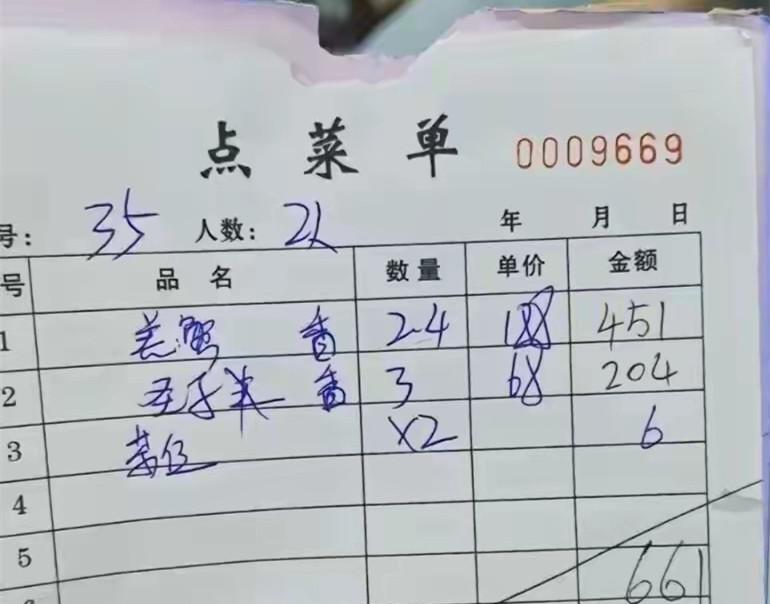 点菜单 0009669
号: 35 人数: 2人 年 月 日
号 品名 数量 单价 金额
1 羔蟹 香 2.4 188 451
2 香 3 68 204
3 茶位 X2 6
4
5
661